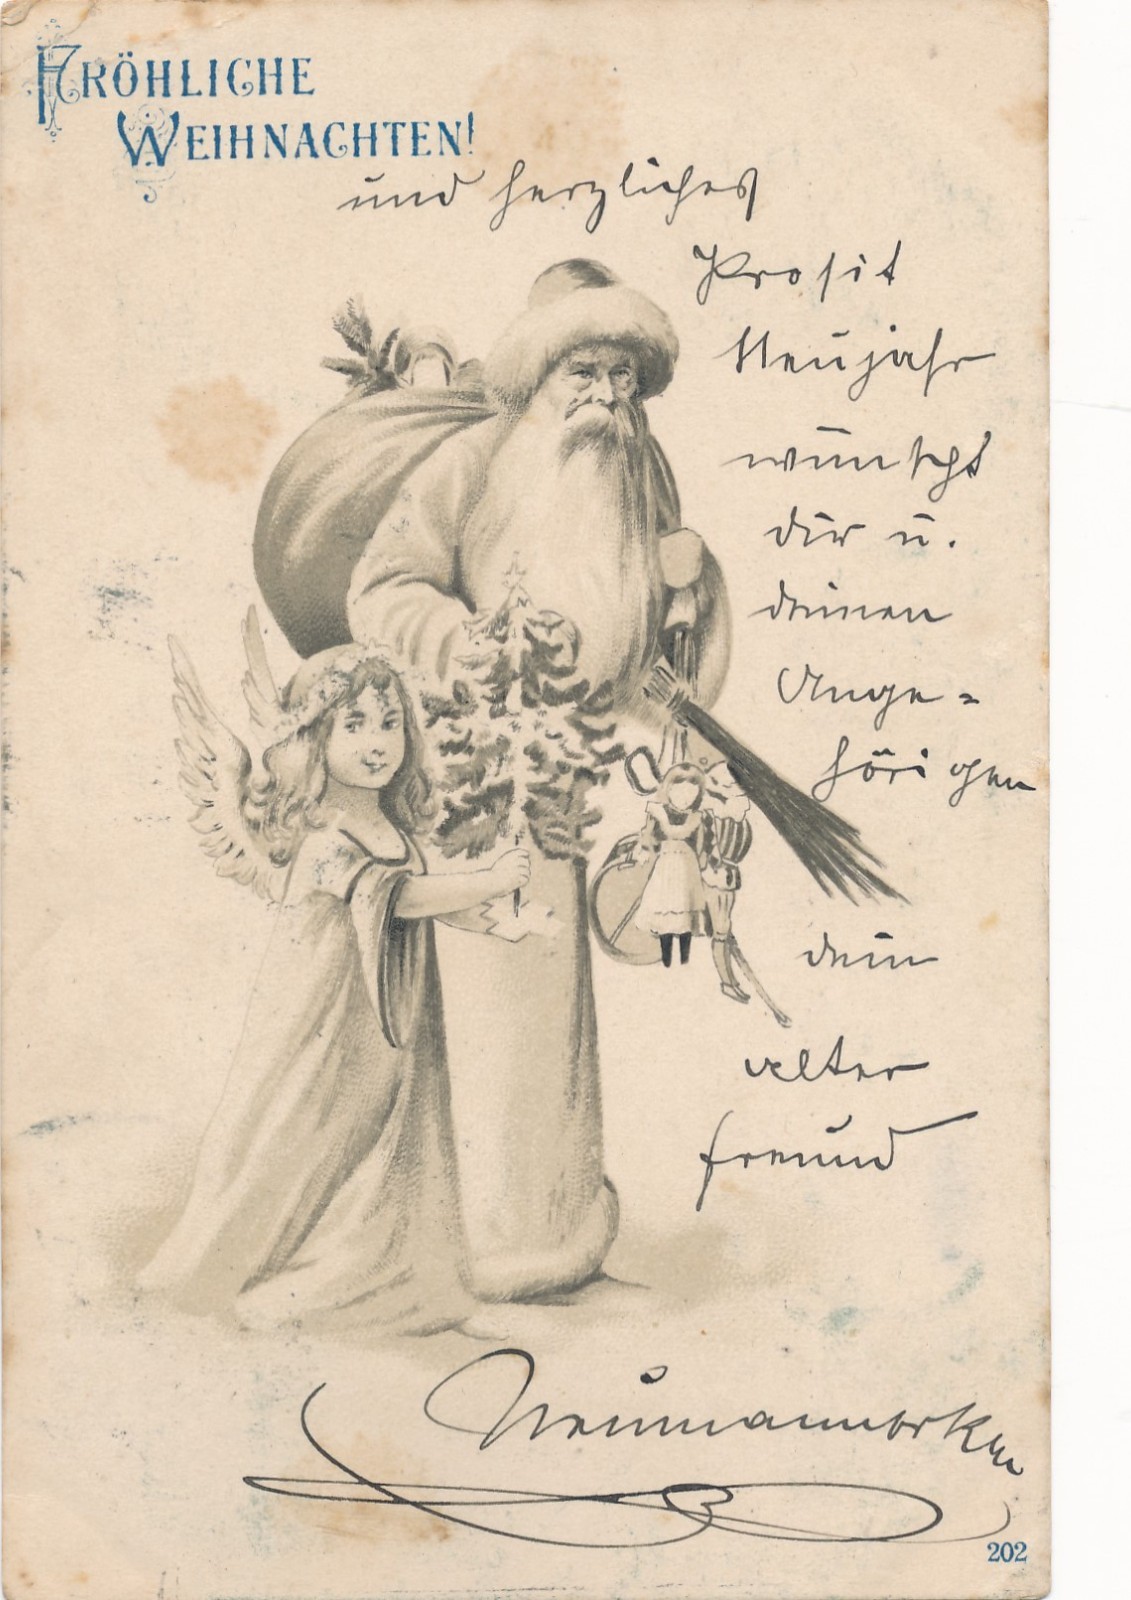 FRÖHLICHE
WEIHNACHTEN!
und herzliches
Prosit
Neujahr
wünscht
dir u.
deinen
Ange=
hörigen
dein
alter
freund
202